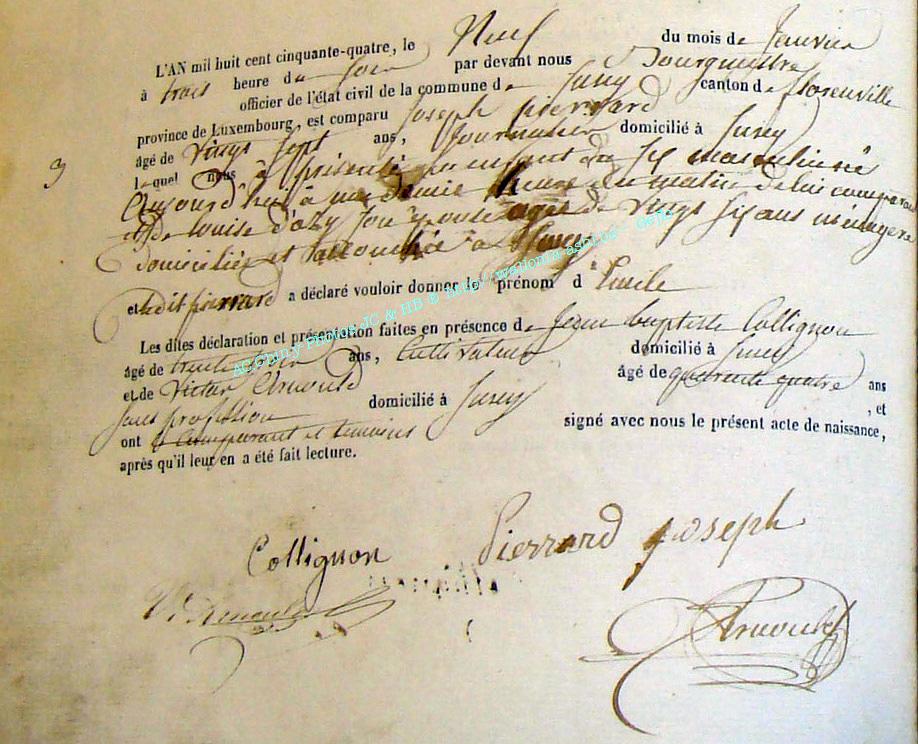 L'AN mil huit cent cinquante-quatre, le Neuf du mois de Janvier
à trois heure du soir par devant nous Bourgmestre
officier de l'état civil de la commune de Jusey canton de florenville
province de Luxembourg, est comparu Joseph pierrard
âgé de vingt sept ans, Journalier domicilié à Jusey
lequel nous à présenté un enfant du masculin né
Aujourd'hui à une demie heure du matin de lui comparant
et de Louise d'ozy son épouse agée de vingt ans menagere
domiciliée et accouchée à
et ledit pierrard a déclaré vouloir donner le prénom d
Les dites déclaration et présentation faites en présence de Jean baptiste Collignon
âgé de trente ans, Cultivateur domicilié à Jusey
et de Victor Arnould âgé de quarante quatre ans
sans profession domicilié à Jusey , et
ont le comparant et temoins signé avec nous le présent acte de naissance,
après qu'il leur en a été fait lecture.
3
AC Chiny Photos JC & HB ® http://wallonia-asbl.be
Collignon Pierrard Joseph
V. Arnould Arnould